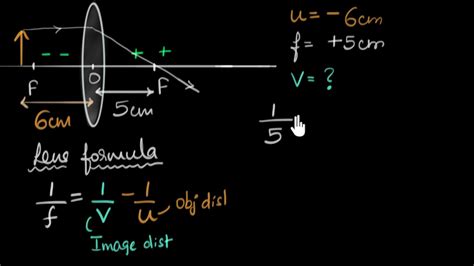 u = - 6cm
f = +5cm
v = ?
- - + +
F O F
6cm 5cm
1/5
Lens formula
1/f = 1/v - 1/u
Obj dist
Image dist